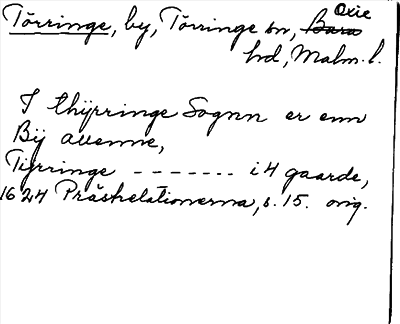 Törringe, by, Törringe sn, Bara Oxie
hd, Malm. l.
I thÿrringe Sognn er enn
Bÿ allenne,
Tÿrringe - - - - - - - i 4 gaarde,
1624 Prästrelationerna, s. 15. orig.